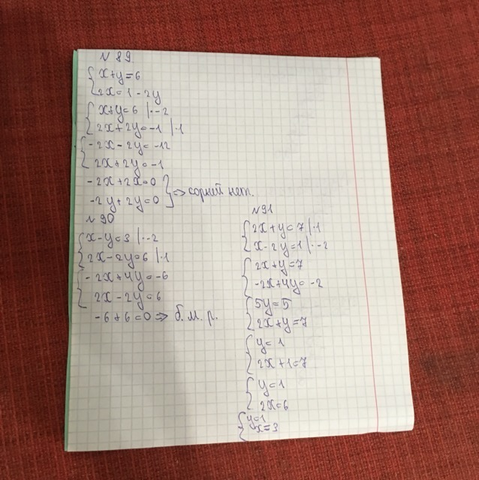 N 89.
{ x+y=6
2x=1-2y
{ x+y=6 |·-2
2x+2y=-1 |·1
{ -2x-2y=-12
2x+2y=-1
-2x+2x=0
-2y+2y=0 } => корней нет.
N 90
{ x-y=3 |·-2
2x-2y=6 |·1
{ -2x+4y=-6
2x-2y=6
-6+6=0 => б. м. р.
N 91
{ 2x+y=7 |·1
x-2y=1 |·-2
{ 2x+y=7
-2x+4y=-2
{ 5y=5
2x+y=7
{ y=1
2x+1=7
{ y=1
2x=6
{ y=1
x=3